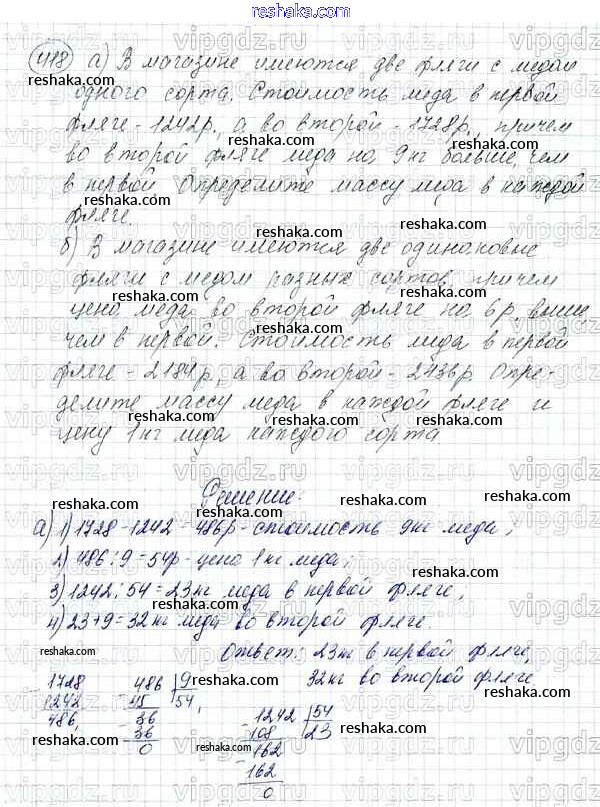 reshaka.com
418 а) В магазине имеются две фляги с медом
одного сорта. Стоимость меда в первой
фляге - 1242р., а во второй - 1728р., причем
во второй фляге меда на 9кг больше, чем
в первой. Определите массу меда в каждой
фляге.
б) В магазине имеются две одинаковые
фляги с медом разных сортов, причем
цена меда во второй фляге на 6р. выше
чем в первой. Стоимость меда в первой
фляге - 2184р., а во второй - 2436р. Опре-
делите массу меда в каждой фляге и
цену 1кг меда каждого сорта
Решение:
а) 1) 1728-1242=486р - стоимость 9кг меда;
2) 486:9=54р - цена 1кг меда;
3) 1242:54=23кг меда в первой фляге;
4) 23+9=32кг меда во второй фляге.
Ответ: 23кг в первой фляге,
32кг во второй фляге
1728 486 9
1242 45 54
486 36 1242 54
36 108 23
0 162
162
0
reshaka.com